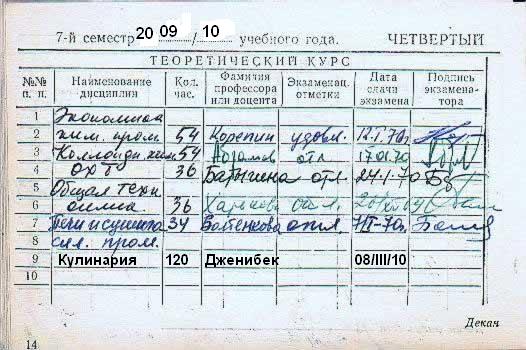 7-й семестр 20 09 / 10 учебного года. ЧЕТВЕРТЫЙ
ТЕОРЕТИЧЕСКИЙ КУРС
№№ п. п. Наименование дисциплин Кол. час. Фамилия профессора или доцента Экзаменац. отметки Дата сдачи экзамена Подпись экзаменатора
1 Экономика
2 хим. пром. 54 удовл. 12.1.70г.
3 Коллоидн. хим. 54 Абрамов отл 17.01.70
4 ОХТ 36 отл 24.1.70
5 Общая техн
6 36 отл.
7 Печи и сушила 34 отл
8 сил. пром.
9 Кулинария 120 Дженибек 08/III/10
10
Декан
14